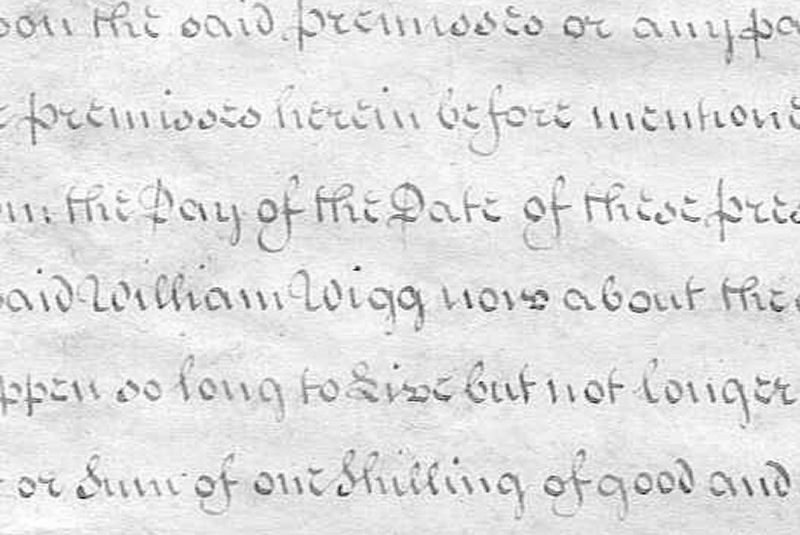 oon the said premisses or any pa
e premisses herein before mentione
m the Day of the Date of these pres
said William Wigg now about the
ppen so long to Live but not longer
or Sum of one Shilling of good and